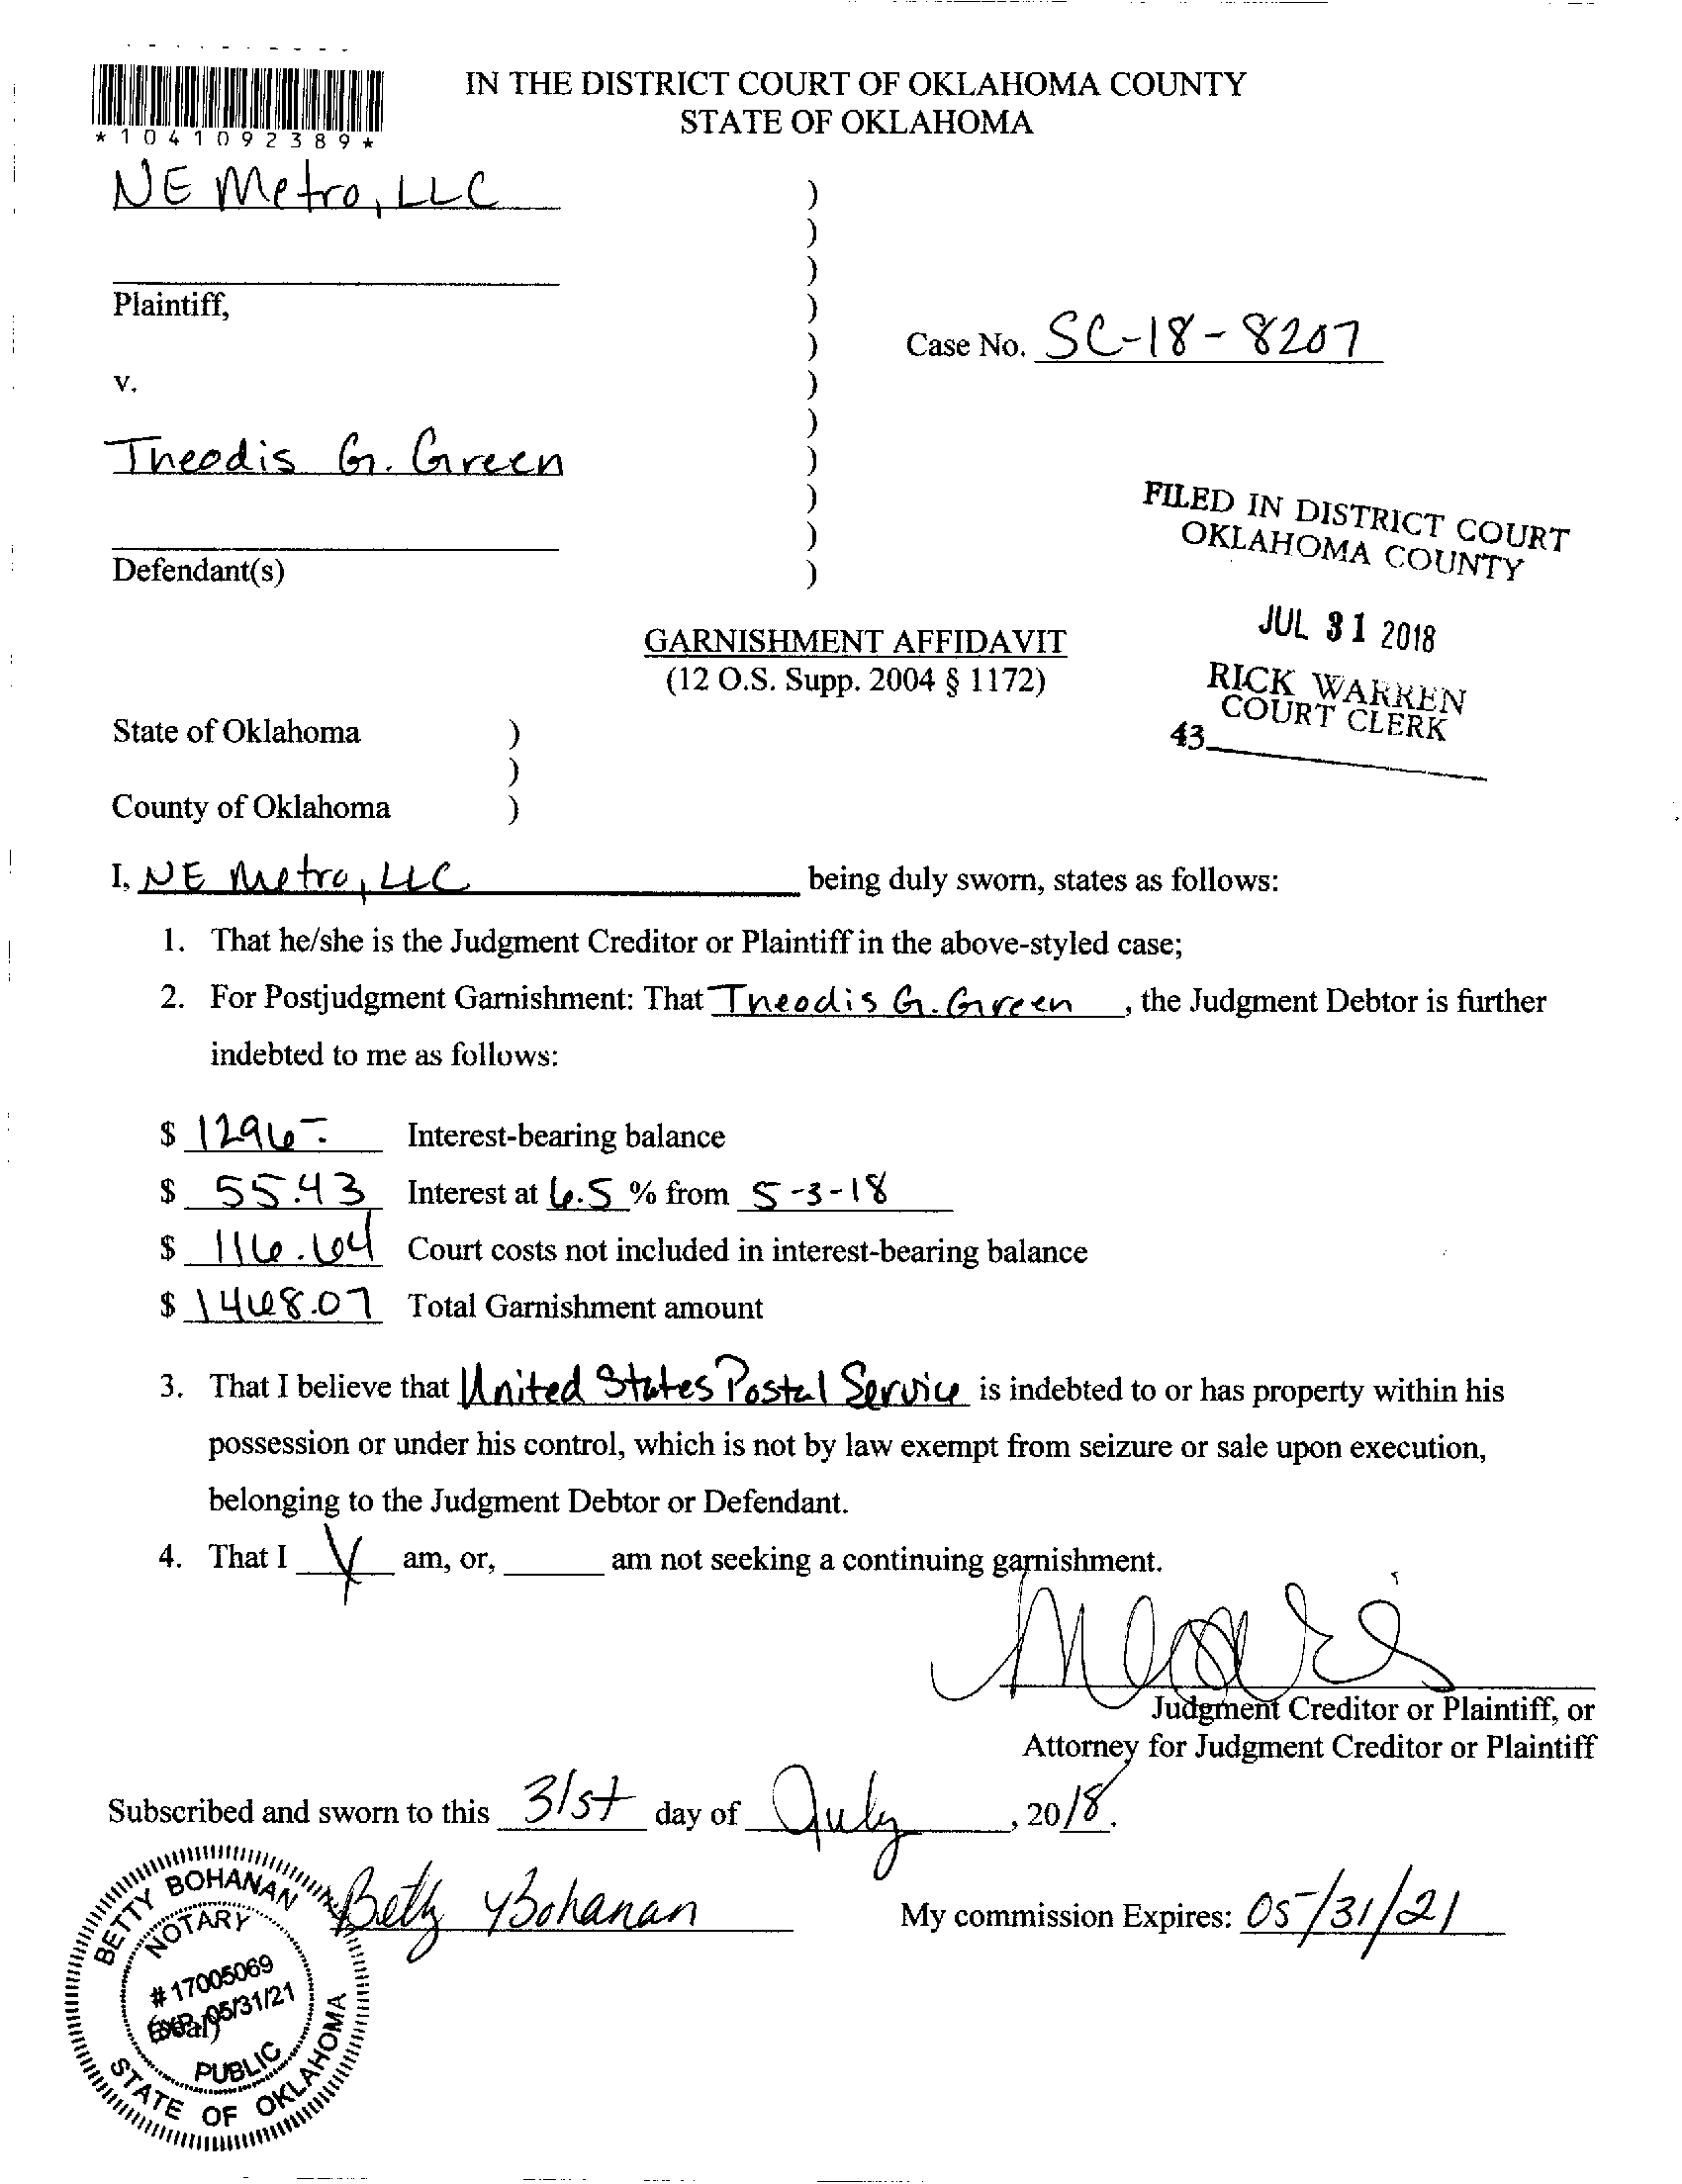 IN THE DISTRICT COURT OF OKLAHOMA COUNTY
STATE OF OKLAHOMA
*1041092389*
NE Metro, LLC )
)
)
Plaintiff, )
) Case No. SC-18-8207
v. )
)
Theodis G. Green )
)
)
Defendant(s) )
FILED IN DISTRICT COURT
OKLAHOMA COUNTY
JUL 31 2018
RICK WARREN
COURT CLERK
43
GARNISHMENT AFFIDAVIT
(12 O.S. Supp. 2004 § 1172)
State of Oklahoma )
)
County of Oklahoma )
I, NE Metro, LLC being duly sworn, states as follows:
1. That he/she is the Judgment Creditor or Plaintiff in the above-styled case;
2. For Postjudgment Garnishment: That Theodis G. Green, the Judgment Debtor is further
indebted to me as follows:
$ 1296-. Interest-bearing balance
$ 55.43 Interest at 6.5 % from 5-3-18
$ 116.64 Court costs not included in interest-bearing balance
$ 1468.07 Total Garnishment amount
3. That I believe that United States Postal Service is indebted to or has property within his
possession or under his control, which is not by law exempt from seizure or sale upon execution,
belonging to the Judgment Debtor or Defendant.
4. That I X am, or, ______ am not seeking a continuing garnishment.
Judgment Creditor or Plaintiff, or
Attorney for Judgment Creditor or Plaintiff
Subscribed and sworn to this 31st day of July, 2018.
Betty Bohanan My commission Expires: 05/31/21
BETTY BOHANAN
NOTARY
# 17005069
EXP. 05/31/21
(Seal)
PUBLIC
STATE OF OKLAHOMA